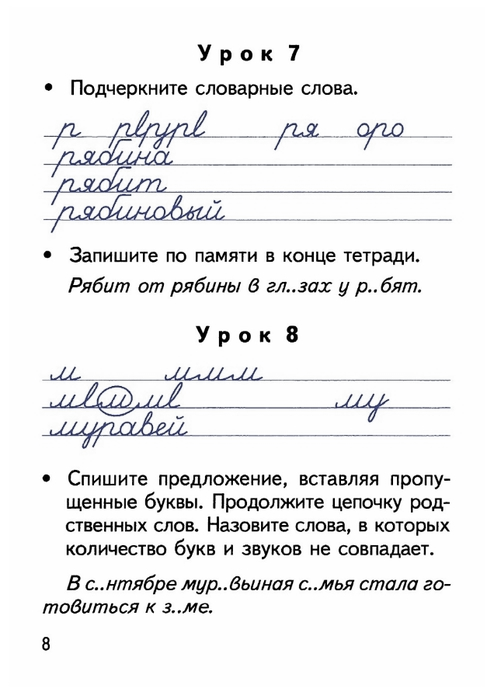 Урок 7
• Подчеркните словарные слова.
р рвгрв ря оро
рябина
рябит
рябиновый
• Запишите по памяти в конце тетради.
Рябит от рябины в гл..зах у р..бят.
Урок 8
м ммм
мвммв му
муравей
• Спишите предложение, вставляя пропу-
щенные буквы. Продолжите цепочку род-
ственных слов. Назовите слова, в которых
количество букв и звуков не совпадает.
В с..нтябре мур..вьиная с..мья стала го-
товиться к з..ме.
8